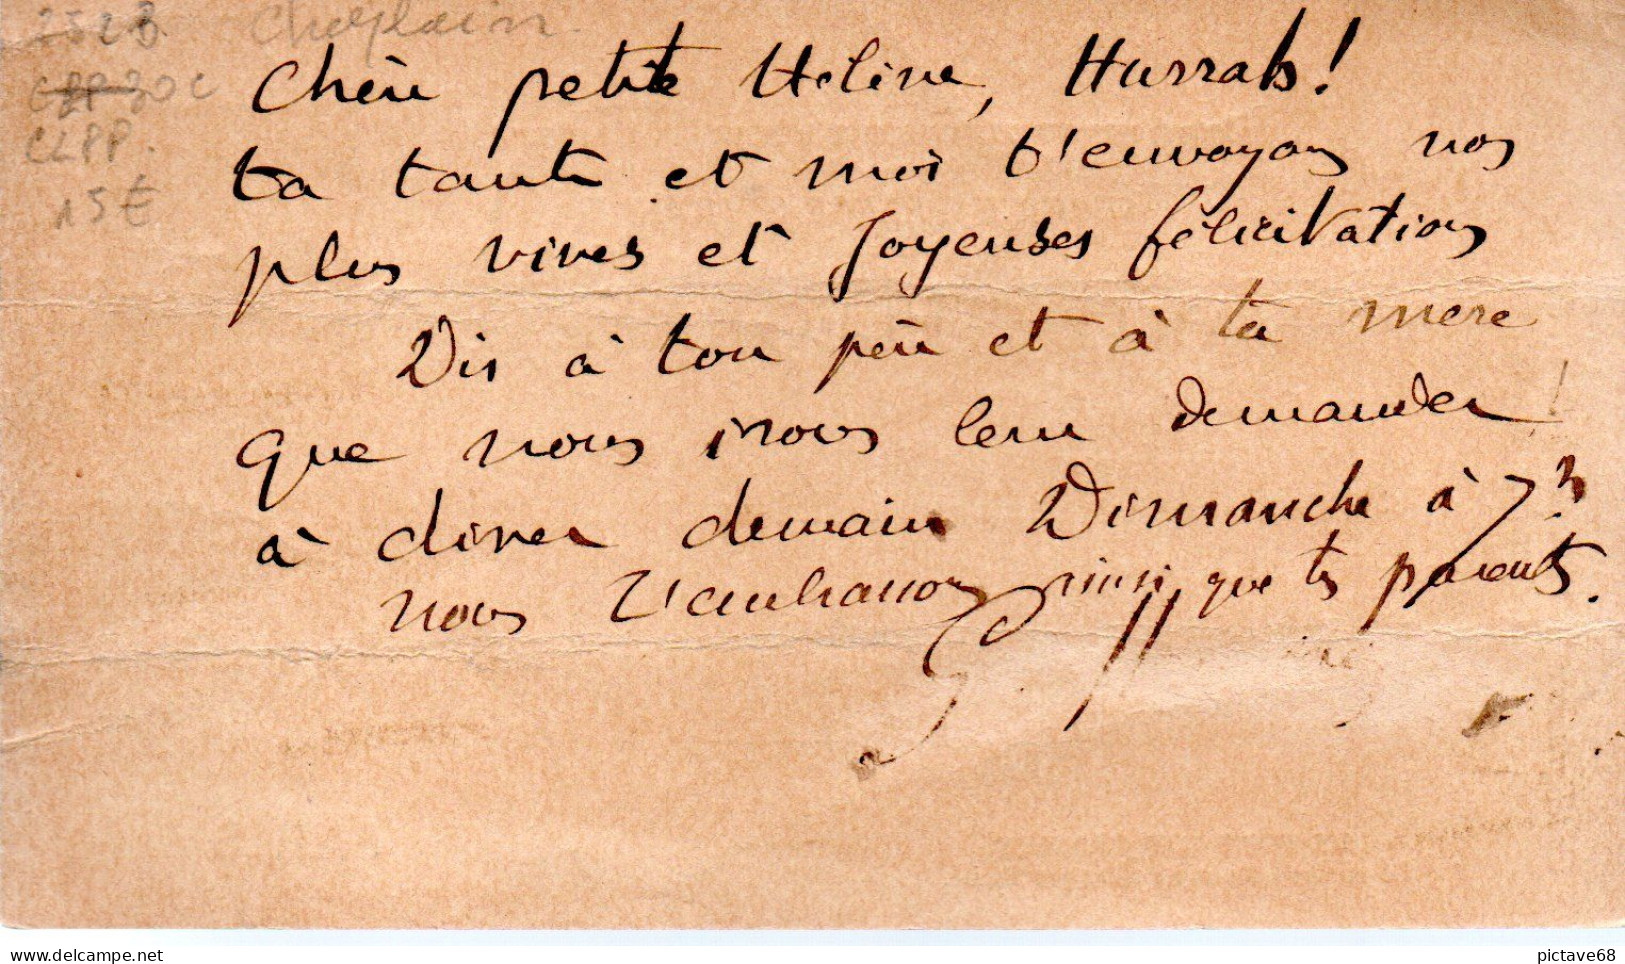 2512B Chaplain
CPP 30c
CLPP.
15€
Chère petite Hélène, Hurrah!
ta tante et moi t'envoyons nos
plus vives et Joyeuses félicitations
Dis à ton père et à ta mere
que nous irons leur demander
à diner demain Dimanche à 7h
nous t'embrassons ainsi que tes parents.
pictave68